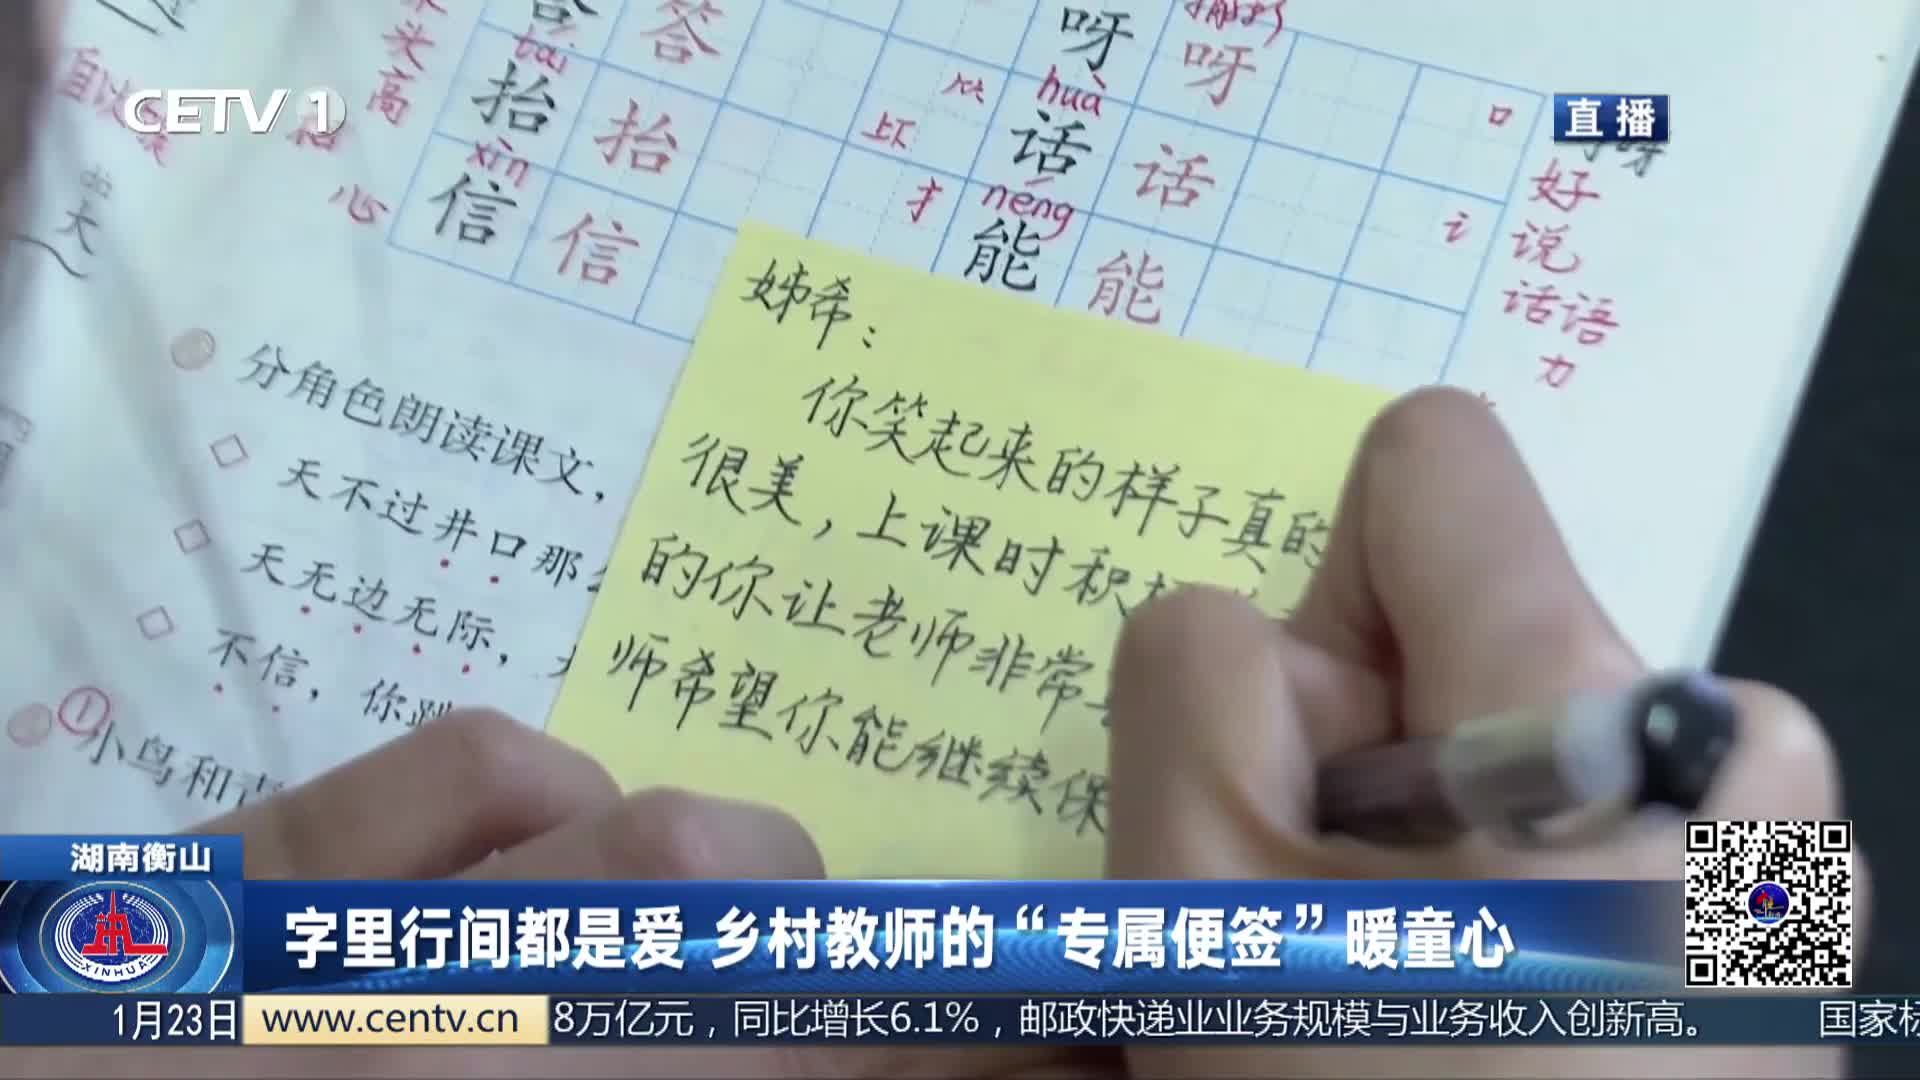 CETV 1
直播
答 答
tái
抬 抬
xìn
信 信
呀 呀
huà
话 话
néng
能 能
口
讠
扌
头
高
心
自以
好
说
话语
力
大
分角色朗读课文，
天不过井口那
天无边无际，
不信，你跳
①小鸟和青
姊希：
你笑起来的样子真的
很美，上课时积极
的你让老师非常
师希望你能继续保
湖南衡山
XINHUA
字里行间都是爱 乡村教师的“专属便签”暖童心
1月23日
www.centv.cn
8万亿元，同比增长6.1%，邮政快递业业务规模与业务收入创新高。
国家标